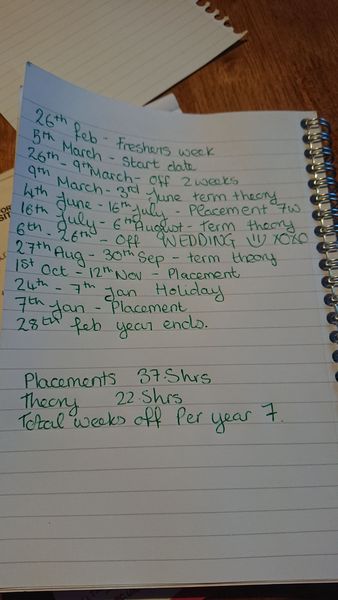 26th Feb - Freshers week
5th March - Start date
26th - 9th March - Off 2 weeks
9th March - 3rd June term theory
4th June - 16th July - Placement 7w
16th July - 6th August - Term theory
6th - 26th - Off WEDDING !!! XOXO
27th Aug - 30th Sep - term theory
1st Oct - 12th Nov - Placement
24th - 7th Jan Holiday
7th Jan - Placement
28th feb year ends.
Placements 37.5hrs
Theory 22.5hrs
Total weeks off Per year 7.